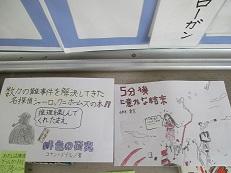 ローガン
数々の難事件を解決してきた
名探偵シャーロックホームズの本!!
推理をしてくれたまえ
緋色の研究
コナン・ドイル/著
5分後に
意外な結末